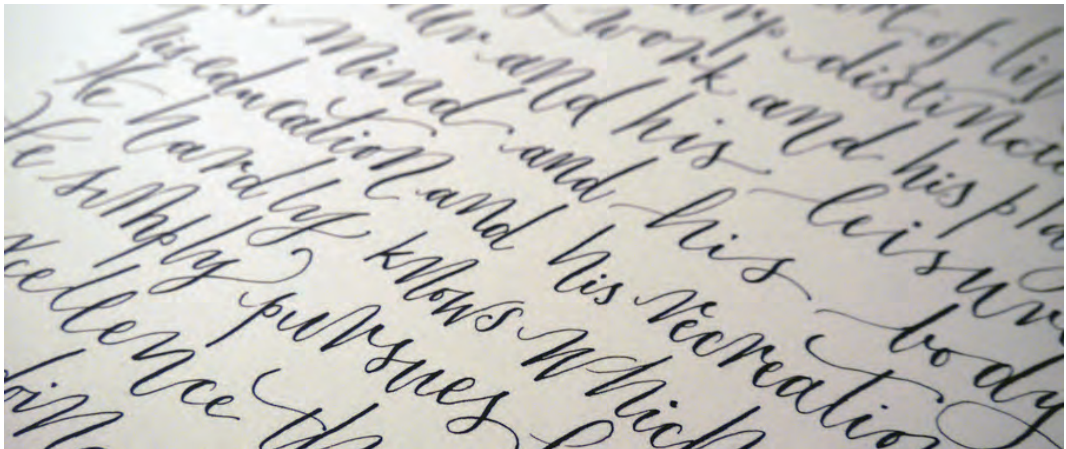 of liv
distinctio
work and his pla
and his leisur
mind and his body
his education and his recreation
He hardly knows which
He simply pursues
cellence th
oin